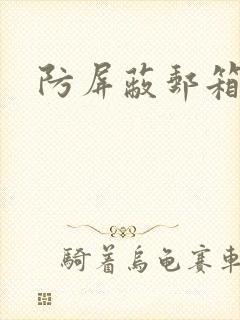 防屏蔽郵箱
騎着烏龜賽車